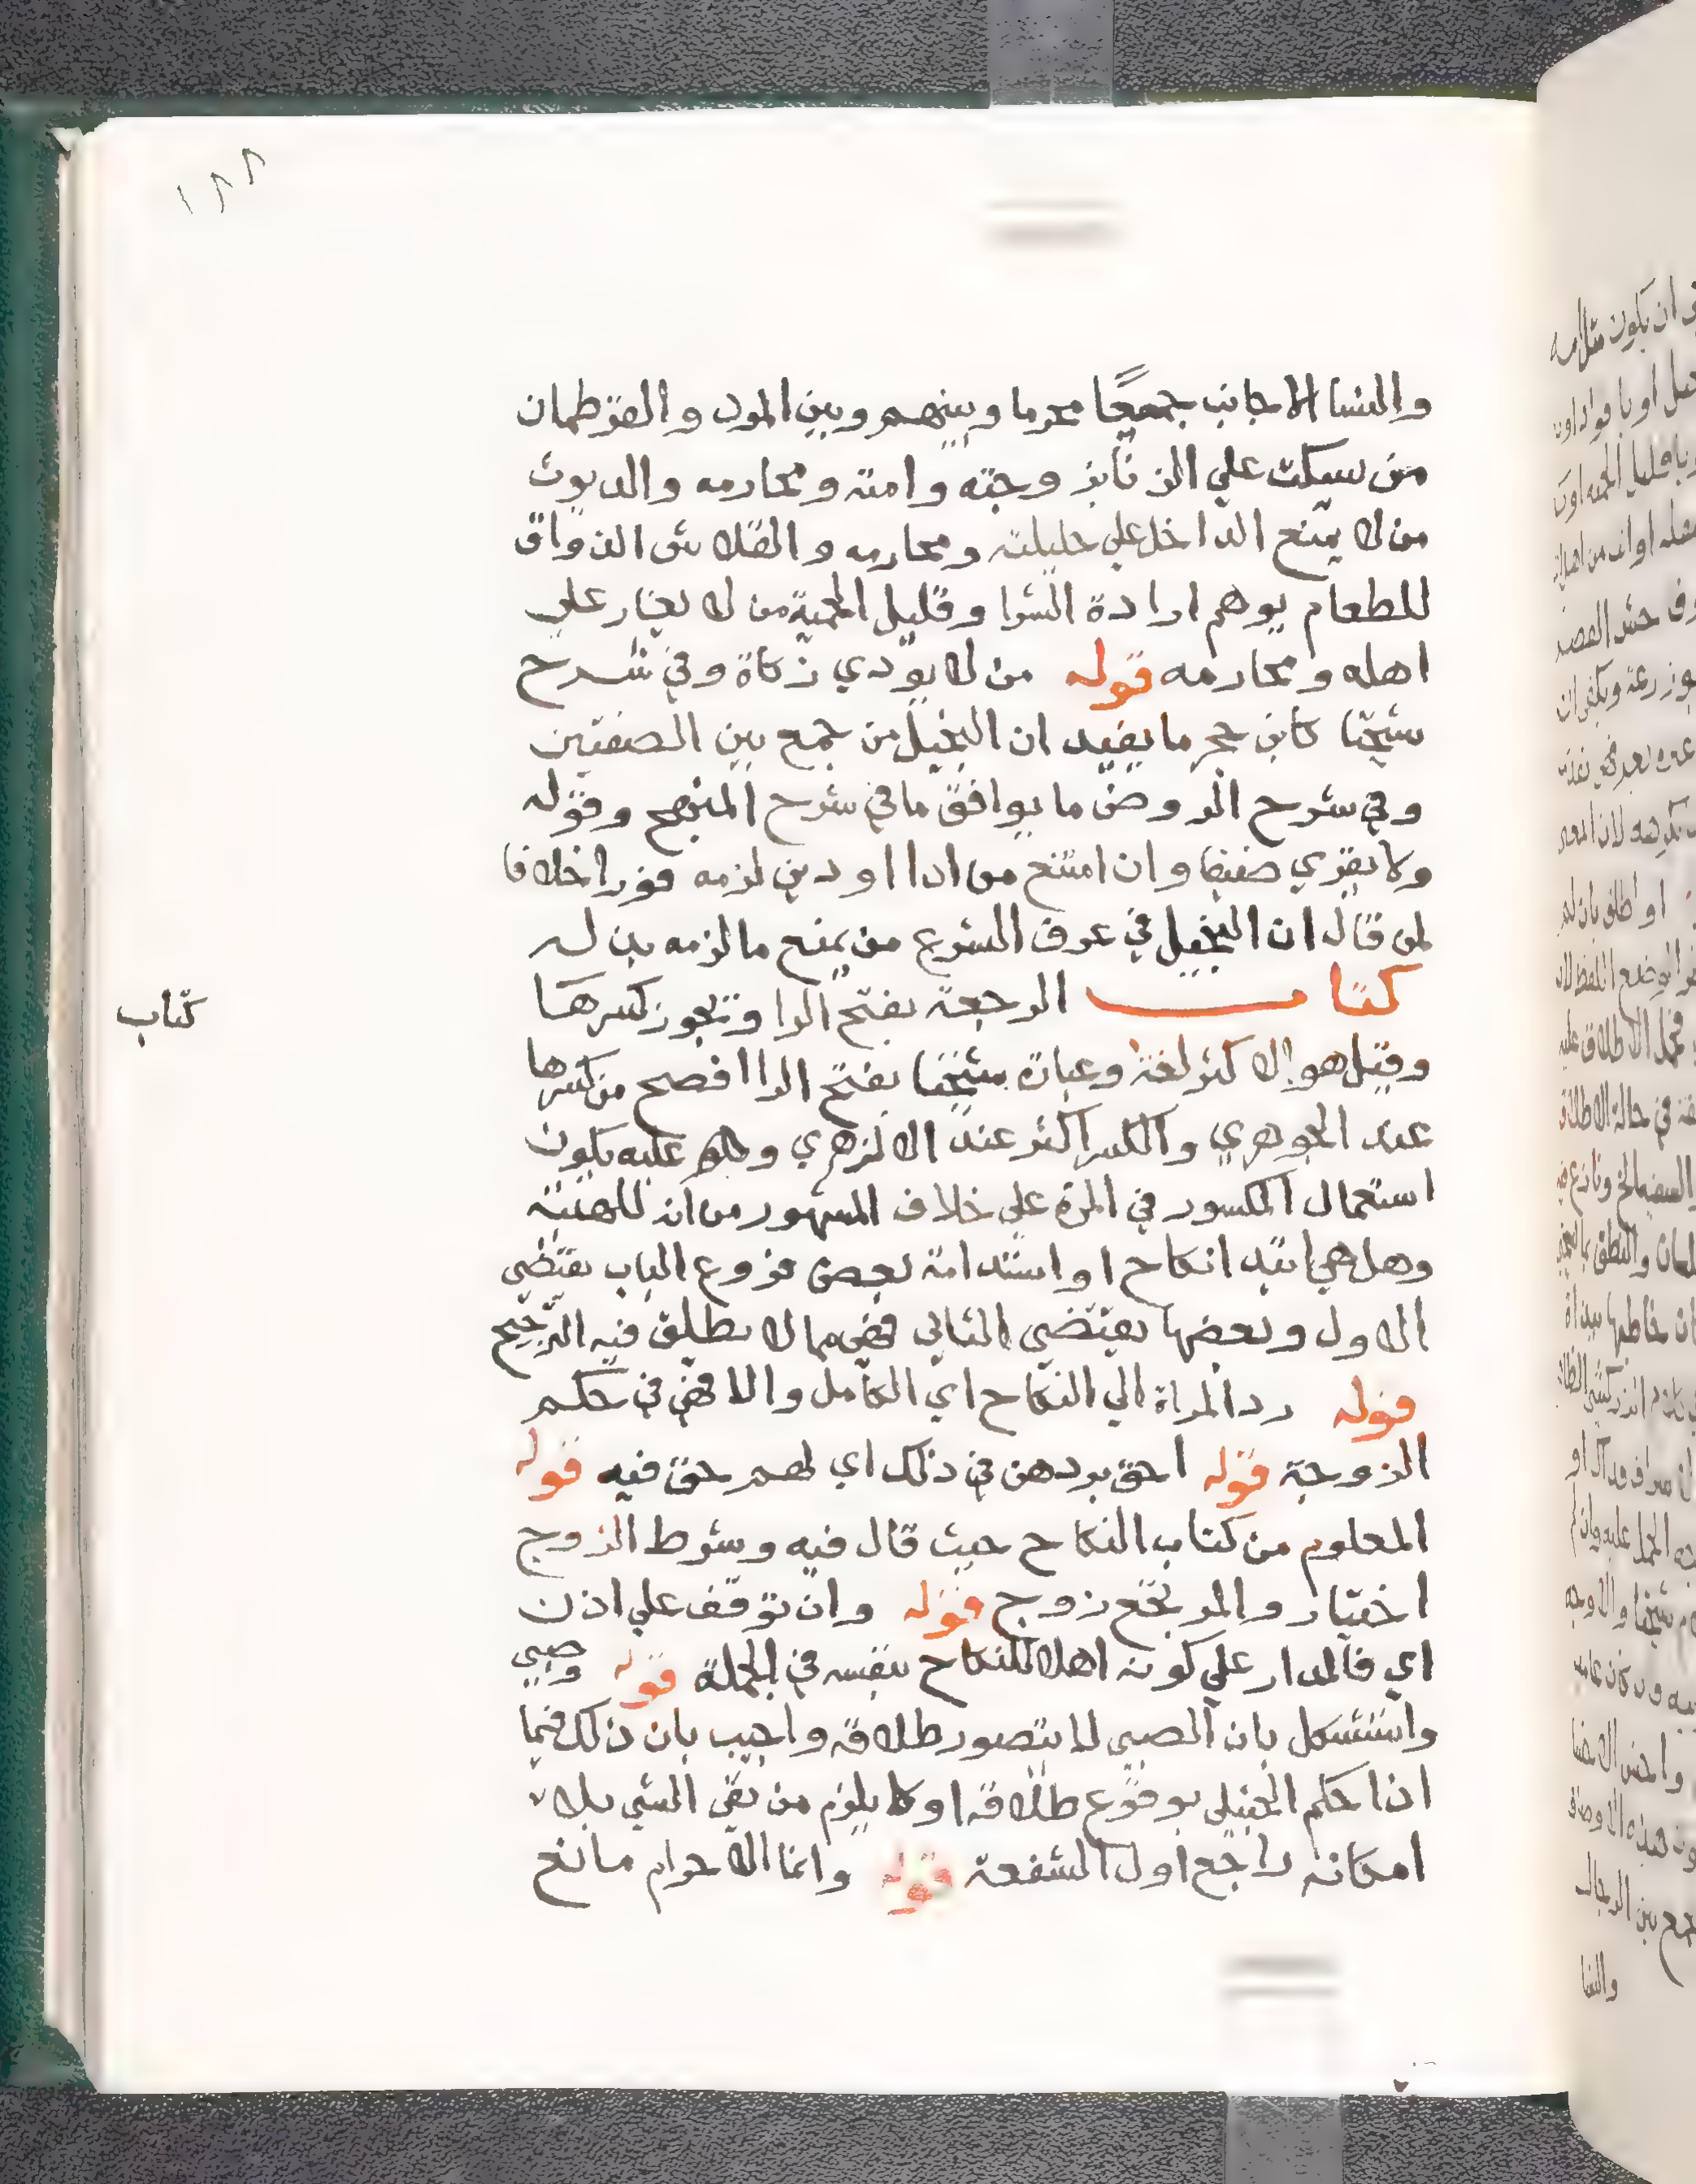 ١٨٨
والنسا الاجانب جميعًا محرما وبينهم وبين المرد والقرطمان
من سيكت علي الزنا بزوجته وامته ومحارمه والديوث
من لا يمنع الداخل علي حليلته ومحارمه والقلاش الذواق
للطعام يوهم ارادة الشرا وقليل الحمية من لا يغار علي
اهله ومحارمه قوله من لا يودي زكاة وفي شرح
شيخنا كابن حجر ما يفيد ان البخيل من جمع بين الصفتين
وفي شرح الروض ما يوافق ما في شرح المنهج وقوله
ولا يقري ضيفا وان امتنع من ادا او دين لزمه فورا خلافا
لمن قال ان البخيل في عرف الشرع من يمنع مالزمه بذله
كتاب الرجعة بفتح الرا ويجوز كسرها
كتاب
وقيل هو الاكثر لغة وعبارة شيخنا بفتح الرا افصح من كسرها
عند الجوهري والكسر اكثر عند الازهري وعليه يكون
استعمال المكسور في المرة علي خلاف المشهور من انه للهيئة
وهل هي ابتدا نكاح او استدامة بعض فروع الباب يقتضي
الاول وبعضها يقتضي الثاني فهي مما لا يطلق فيه الترجيح
قوله رد المراة الي النكاح اي الكامل والا فهي في حكم
الزوجة قوله احق بردهن في ذلك اي لهم حق فيه قوله
المعلوم من كتاب النكاح حيث قال فيه وشرط الزوج
اختيار والمرتجع زوج قوله وان توقف علي اذن
اي فالمدار علي كونه اهلا للنكاح بنفسه في الجملة قوله وصبي
واستشكل بان الصبي لا يتصور طلاقه واجيب بان ذلك فيما
اذا حكم الحنبلي بوقوع طلاقه او لا يلزم من نفي الشي بلا
امكانه راجع اول الشفعة قوله وانما الاحرام مانع